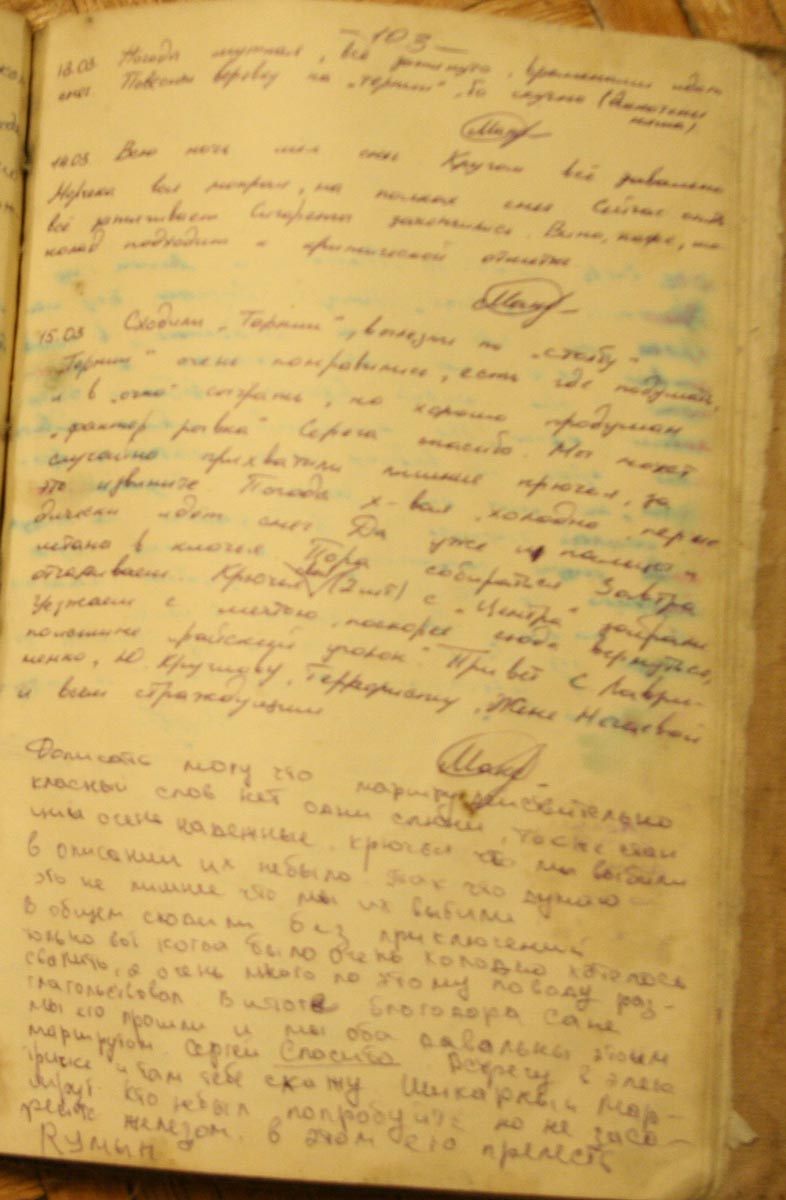 -103-
13.03. Погода мутная, всё затянуто, временами идёт
снег. Повесили верёвку на "Терний", бо скучно (
14.03. Всю ночь шёл снег. Кругом всё завалено
вся мокрая, на полках снег. Сейчас опять
всё затягивает. Сигареты закончились. Вино, кофе, шо-
колад подходит к критической отметке
15.03 Сходили "Терний", вылезли по "столбу"
"Терний" очень понравились, есть где подумать,
и в "очко" сыграть, но хорошо продуман
"фактор рывка" Серёга спасибо. Мы может
случайно прихватили лишние крючья, за
это извините. Погода х-вая, холодно, перио
дически идёт снег. Да уже и пальцы
в клочья. Пора собираться. Завтра
отчаливаем. Крючья (2 шт) с "Центра" забрали
Уезжаем с мечтою, поскорее сюда вернуться,
"райский уголок". Привет С. Лаври-
ненко, Ю. Круглову, Террористу, Жене
и всем страждущим
Дописать могу что маршрут действительно
класный слов нет одни слюни, также стан
ции очень надежные. крючья что мы выбили
в описании их небыло так что думаю
это не лишнее что мы их выбили
В общем сходили без приключений
только вот когда было очень холодно хотелось
свалить, я очень много по этому поводу раз-
глагольствовал. В итоге благодоря Сане
мы его прошли и мы оба давольны этим
маршрутом. Сергей Спасибо. Встречу в элек
тричке и там тебе скажу. Шикарный мар-
шрут. Кто небыл попробуйте но не засо-
ряйте железом. В этом его прелесть
Румын